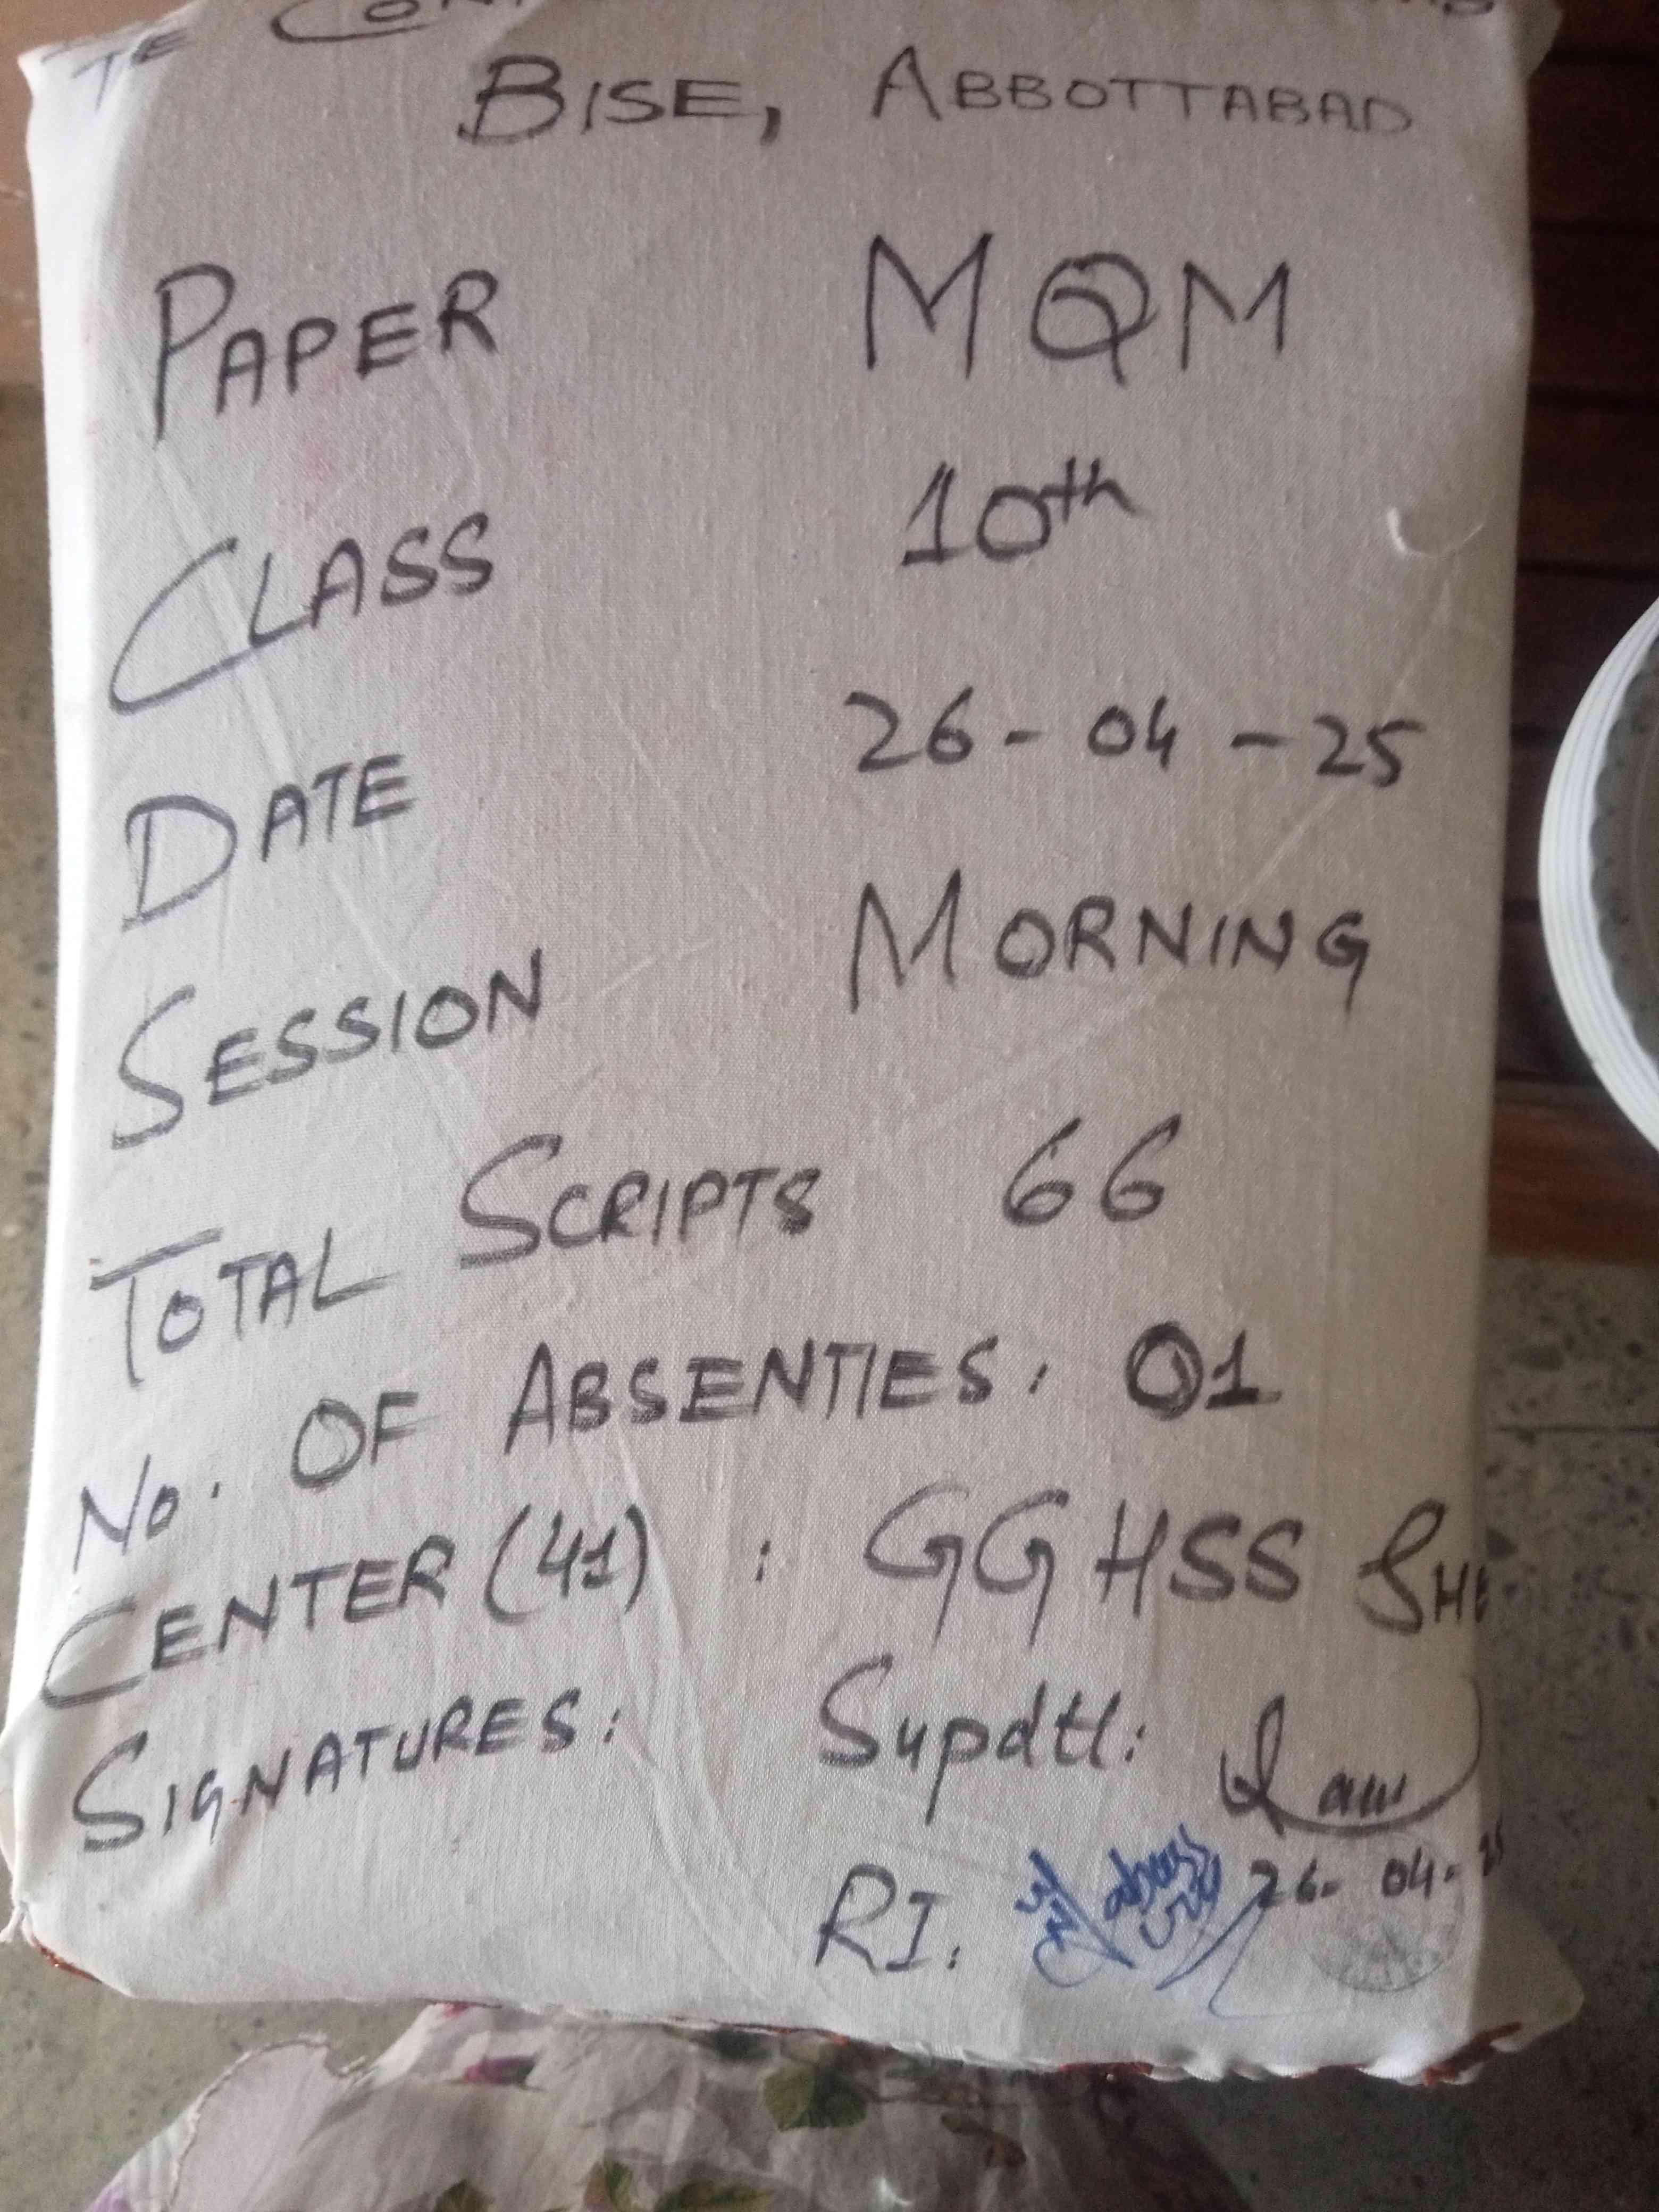 BISE, ABBOTTABAD
PAPER MQM
CLASS 10th
DATE 26-04-25
SESSION MORNING
TOTAL SCRIPTS 66
No. OF ABSENTIES: 01
CENTER (41) : GGHSS SHE
SIGNATURES: Supdtt:
26-04-25
RI.